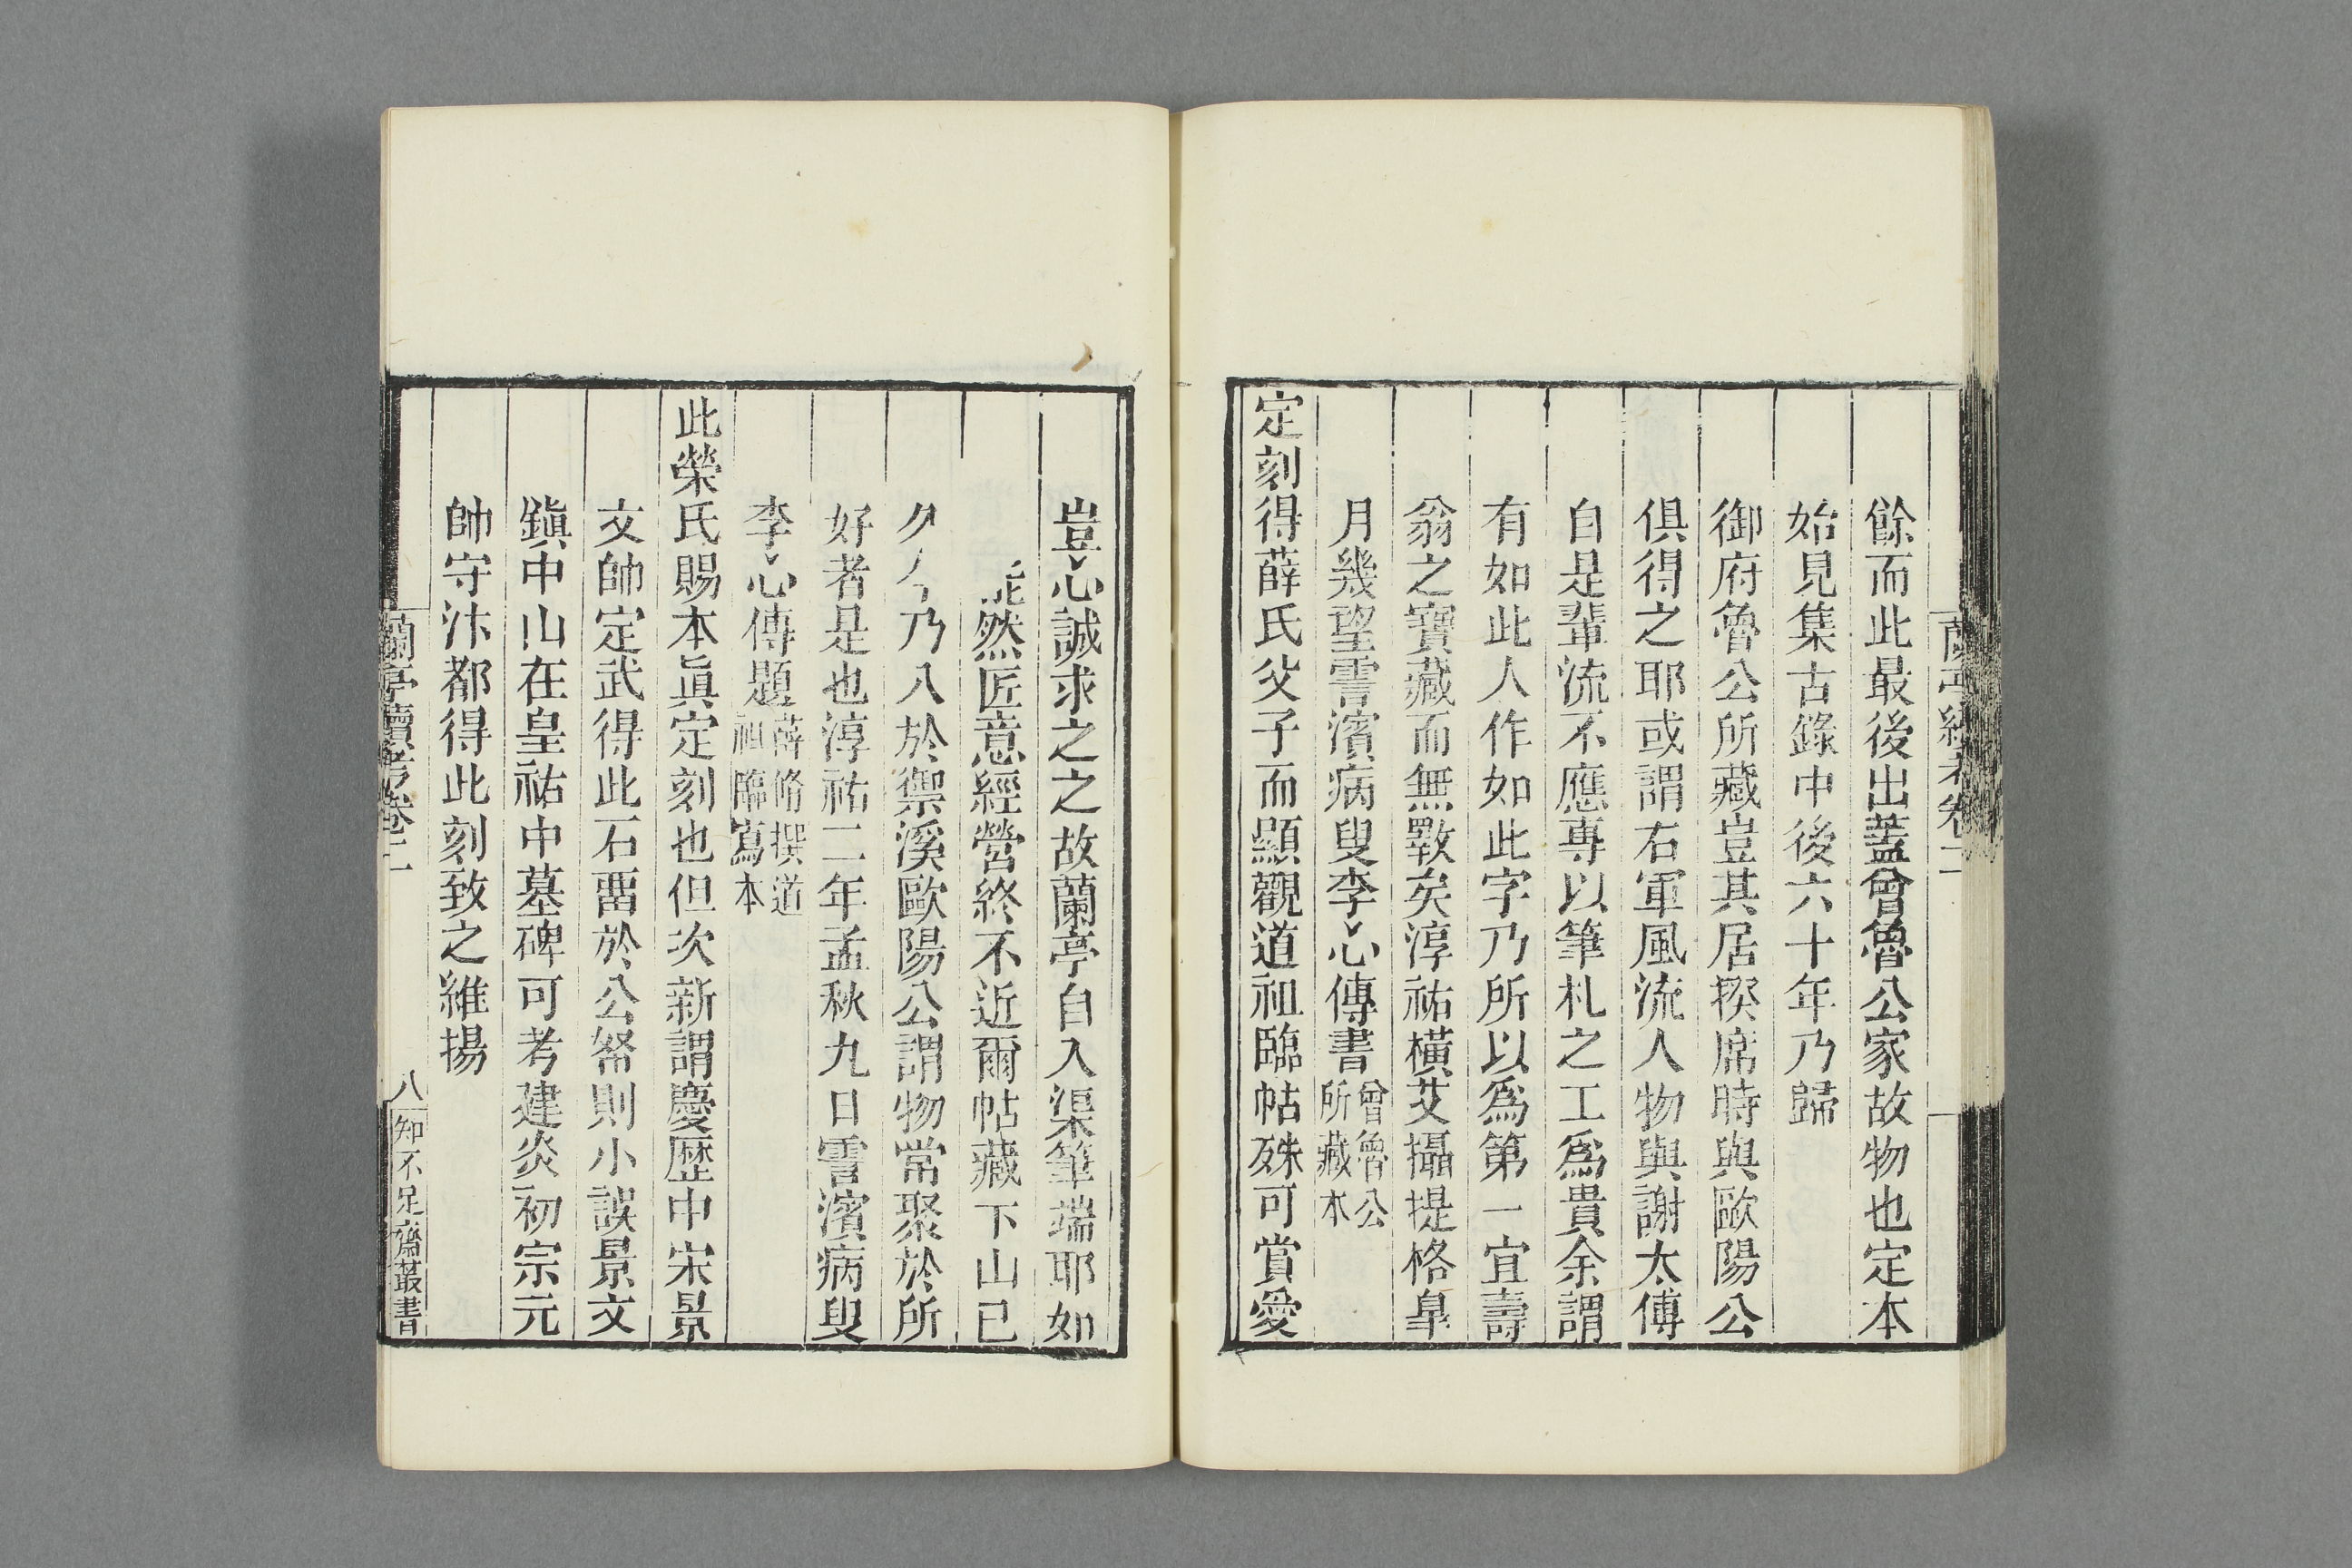 餘而此最後出蓋曾魯公家故物也定本
始見集古錄中後六十年乃歸
御府魯公所藏豈其居揆席時與歐陽公
俱得之耶或謂右軍風流人物與謝太傅
自是輩流不應專以筆札之工爲貴余謂
有如此人作如此字乃所以爲第一宜壽
翁之寶藏而無斁矣淳祐橫艾攝提格臯
月幾望霅濱病叟李心傳書曾魯公
所藏本
定刻得薛氏父子而顯觀道祖臨帖殊可賞愛
豈心誠求之之故蘭亭自入渠筆端耶如
然匠意經營終不近爾帖藏下山已
乃八於禦溪歐陽公謂物常聚於所
好者是也淳祐二年孟秋九日霅濱病叟
李心傳題薛脩撰道
祖臨寫本
此榮氏賜本眞定刻也但次新謂慶歷中宋景
文帥定武得此石畱於公帑則小誤景文
鎭中山在皇祐中墓碑可考建炎初宗元
帥守汴都得此刻致之維揚
蘭亭續考卷二
八
知不足齋叢書